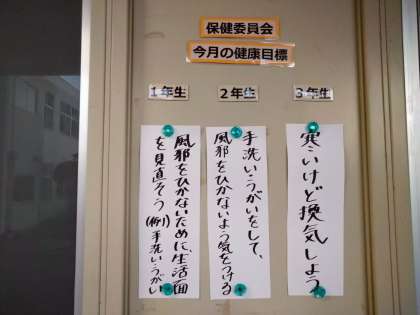 保健委員会
今月の健康目標
1年生
2年生
3年生
風邪をひかないために、生活面
を見直そう(例)手洗いうがい
手洗いうがいをして、
風邪をひかないよう気をつける
寒いけど換気しよう